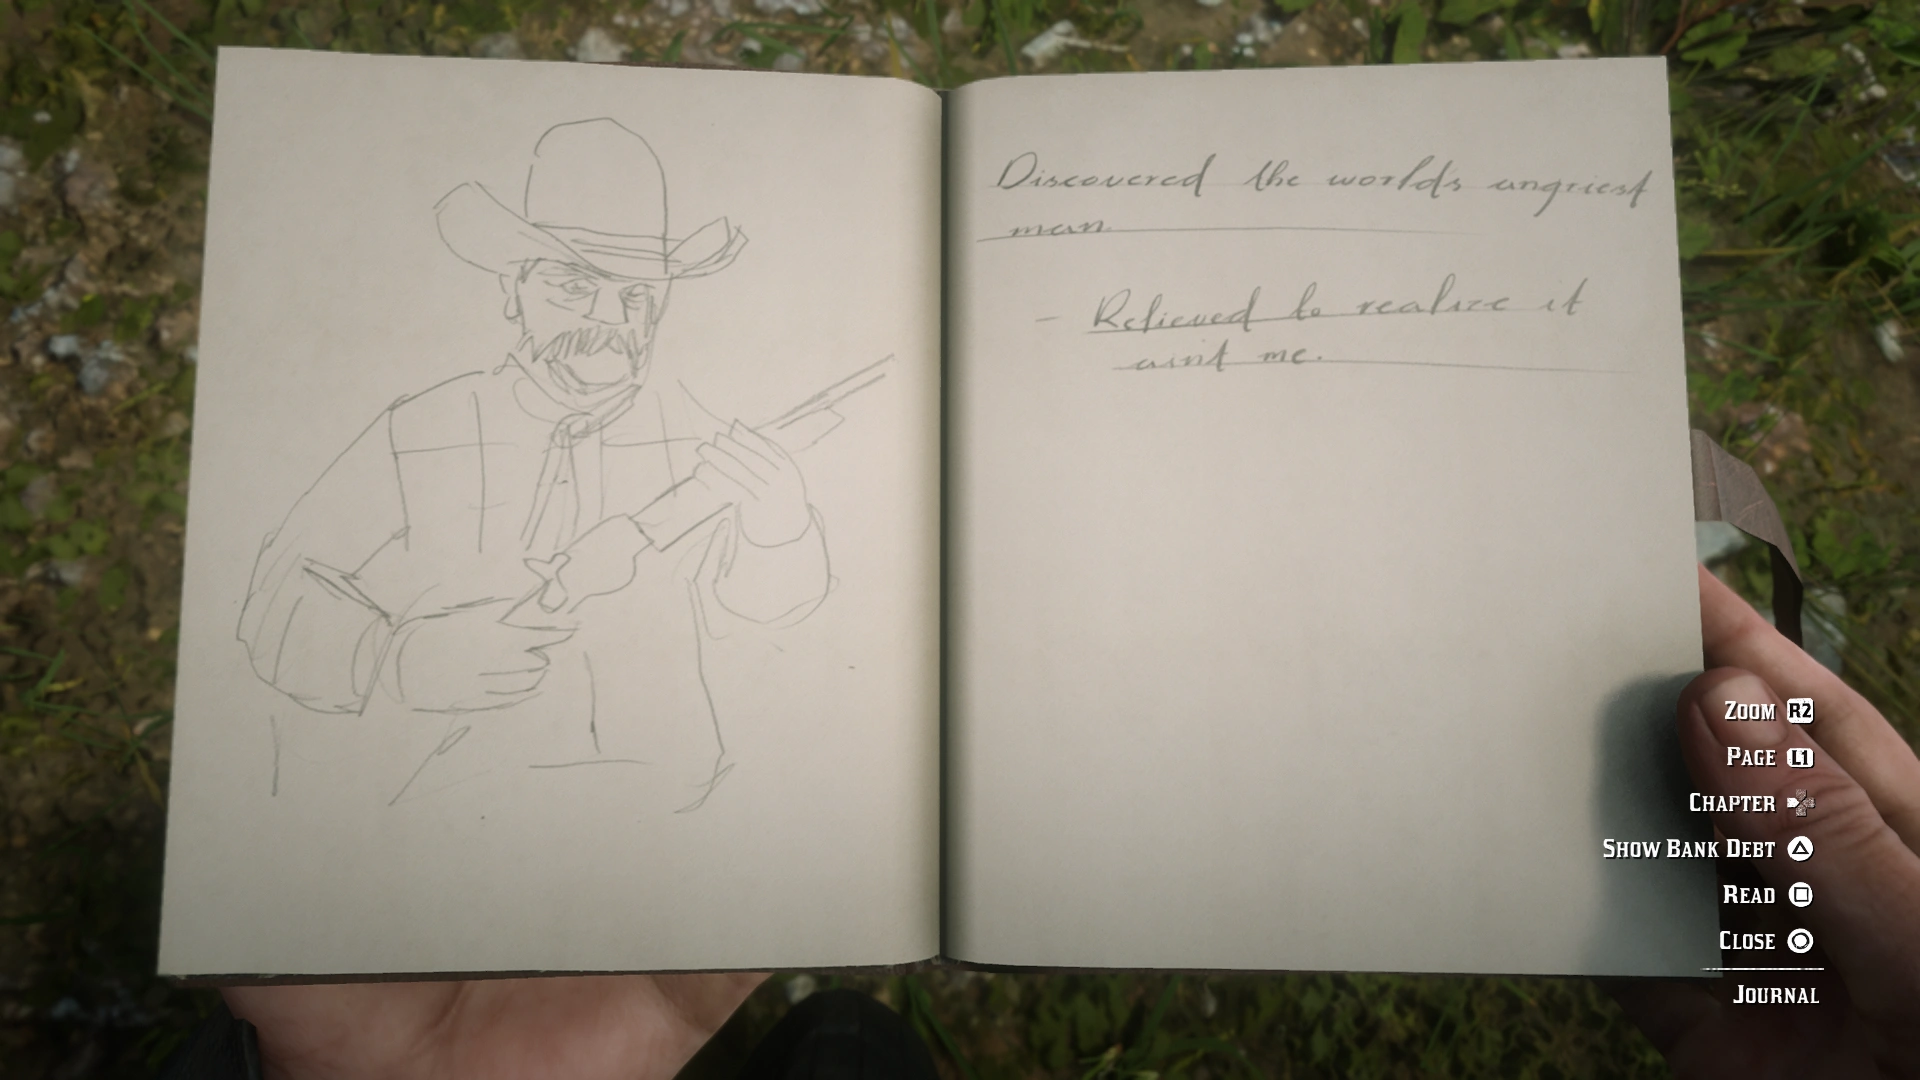 Discovered the worlds angriest
man.
- Relieved to realize it
aint me.
ZOOM R2
PAGE L1
CHAPTER
SHOW BANK DEBT
READ
CLOSE
JOURNAL